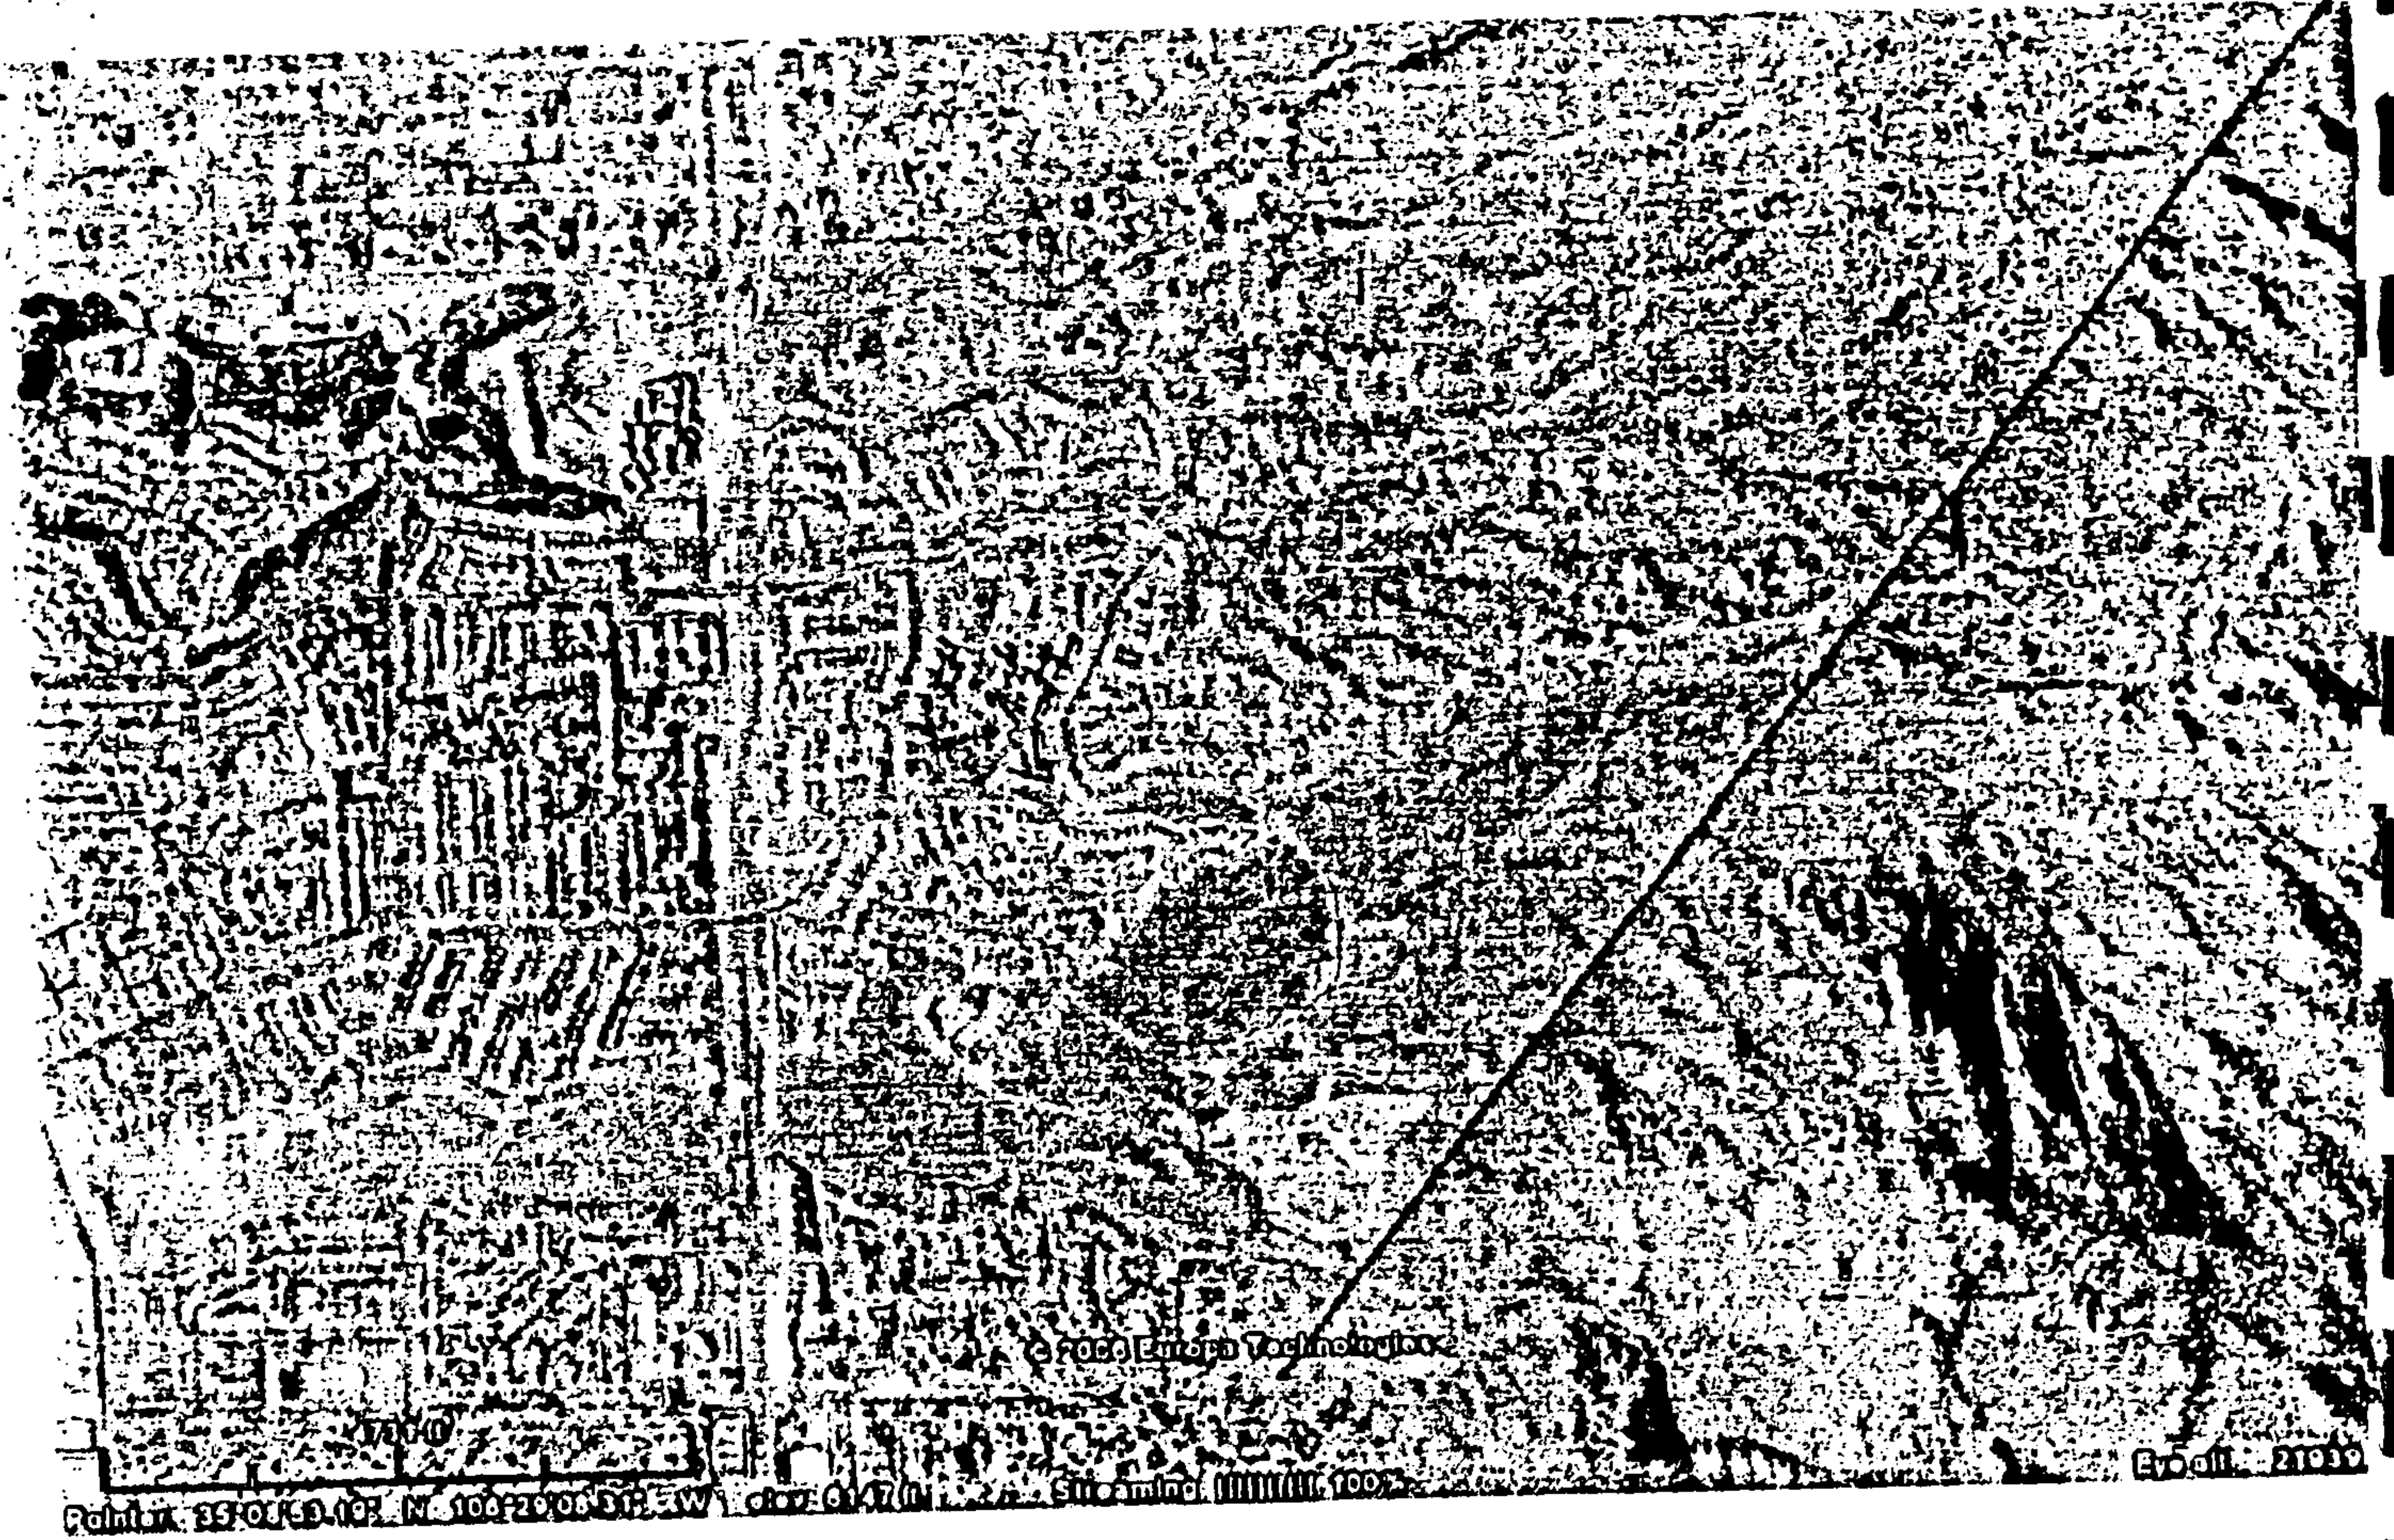 Europa Technologies
Pointer 35°08'53.19" N 106°29'08.31" W elev 6147 ft Streaming |||||||||| 100% Eye alt 21039